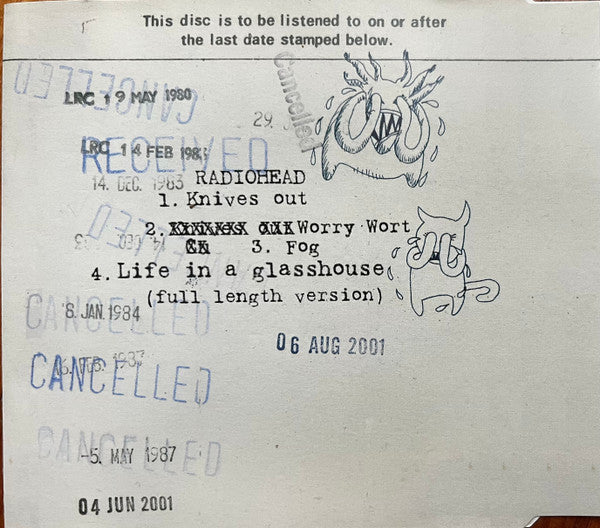 This disc is to be listened to on or after
the last date stamped below.
CANCELLED
Cancelled
LRC 19 MAY 1980
29.
LRC 14 FEB 198
RECEIVED
14. DEC. 1983
RADIOHEAD
1. Knives out
2. Worry Wort
3. Fog
CANCELLED
4. Life in a glasshouse
(full length version)
8. JAN. 1984
CANCELLED
06 AUG 2001
CANCELLED
-5. MAY 1987
CANCELLED
04 JUN 2001